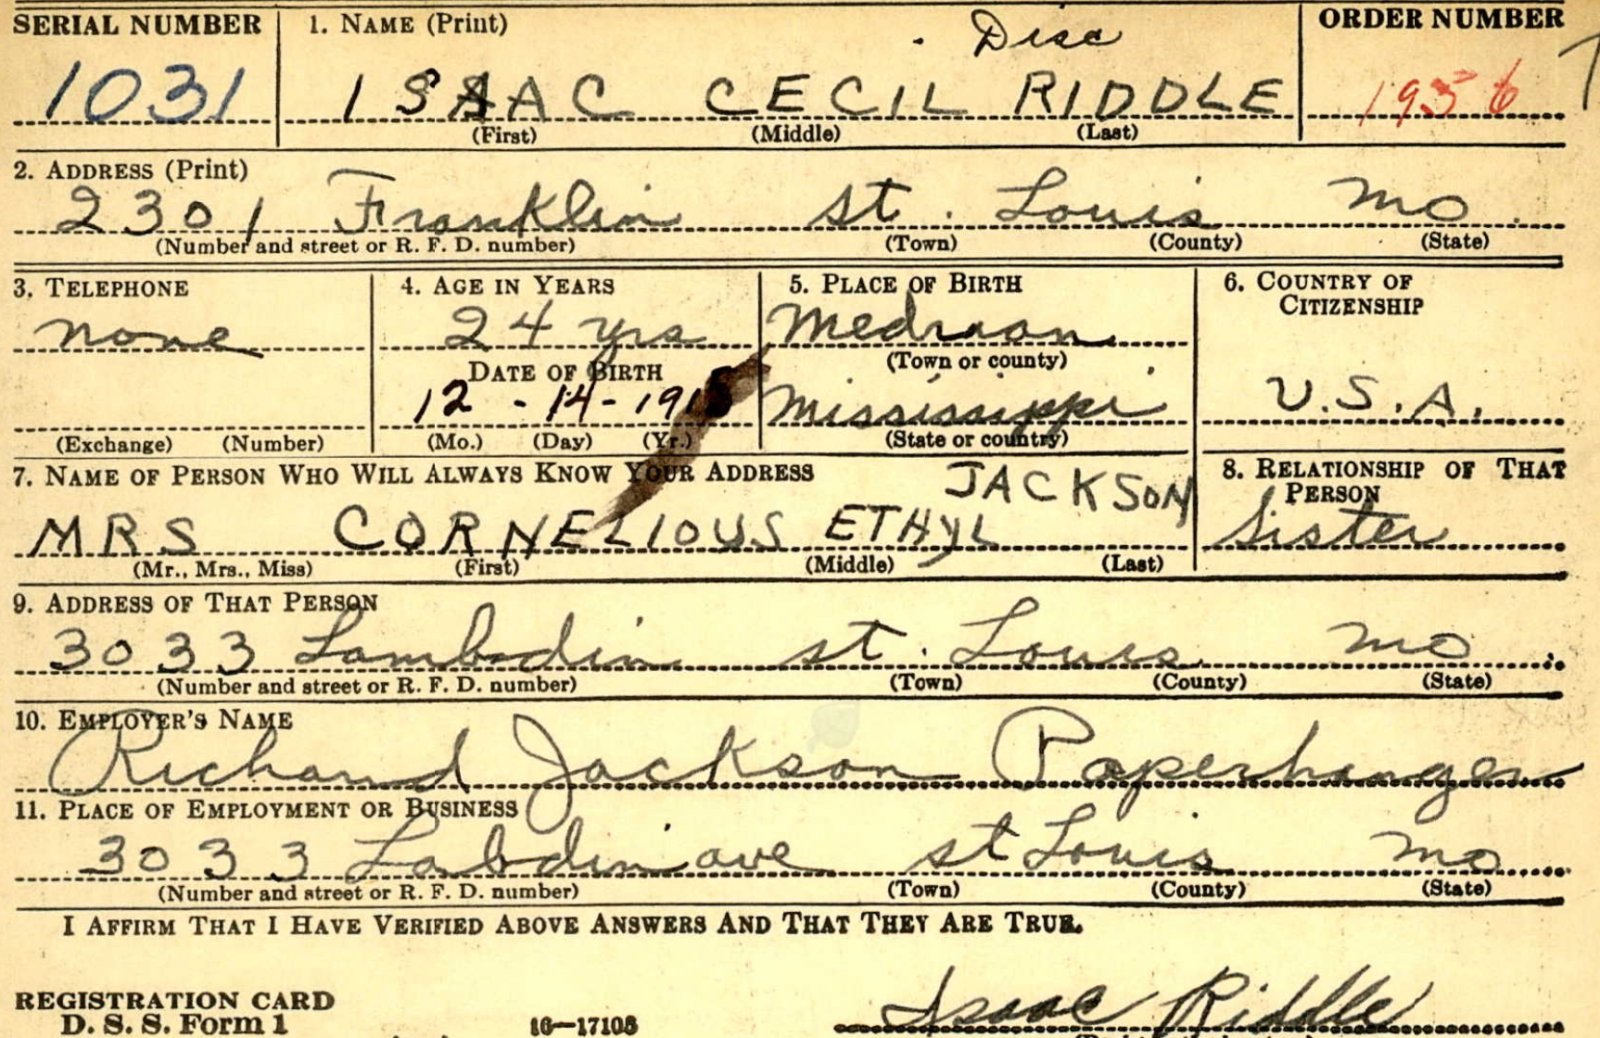 SERIAL NUMBER 1. NAME (Print) Disc ORDER NUMBER
1031 ISAAC CECIL RIDDLE 1956
(First) (Middle) (Last)
2. ADDRESS (Print)
2301 Franklin St. Louis Mo.
(Number and street or R. F. D. number) (Town) (County) (State)
3. TELEPHONE 4. AGE IN YEARS 5. PLACE OF BIRTH 6. COUNTRY OF
CITIZENSHIP
none 24 yrs
(Town or county)
DATE OF BIRTH
12 - 14 - Mississippi U.S.A.
(Exchange) (Number) (Mo.) (Day) (Yr.) (State or country)
7. NAME OF PERSON WHO WILL ALWAYS KNOW YOUR ADDRESS JACKSON 8. RELATIONSHIP OF THAT
PERSON
MRS CORNELIOUS ETHYL Sister
(Mr., Mrs., Miss) (First) (Middle) (Last)
9. ADDRESS OF THAT PERSON
3033 Lambdin St. Louis Mo
(Number and street or R. F. D. number) (Town) (County) (State)
10. EMPLOYER'S NAME
Richard Jackson Paperhanger
11. PLACE OF EMPLOYMENT OR BUSINESS
3033 Labdin ave St Louis Mo
(Number and street or R. F. D. number) (Town) (County) (State)
I AFFIRM THAT I HAVE VERIFIED ABOVE ANSWERS AND THAT THEY ARE TRUE.
REGISTRATION CARD
D. S. S. Form 1 16—17105 Isaac Riddle